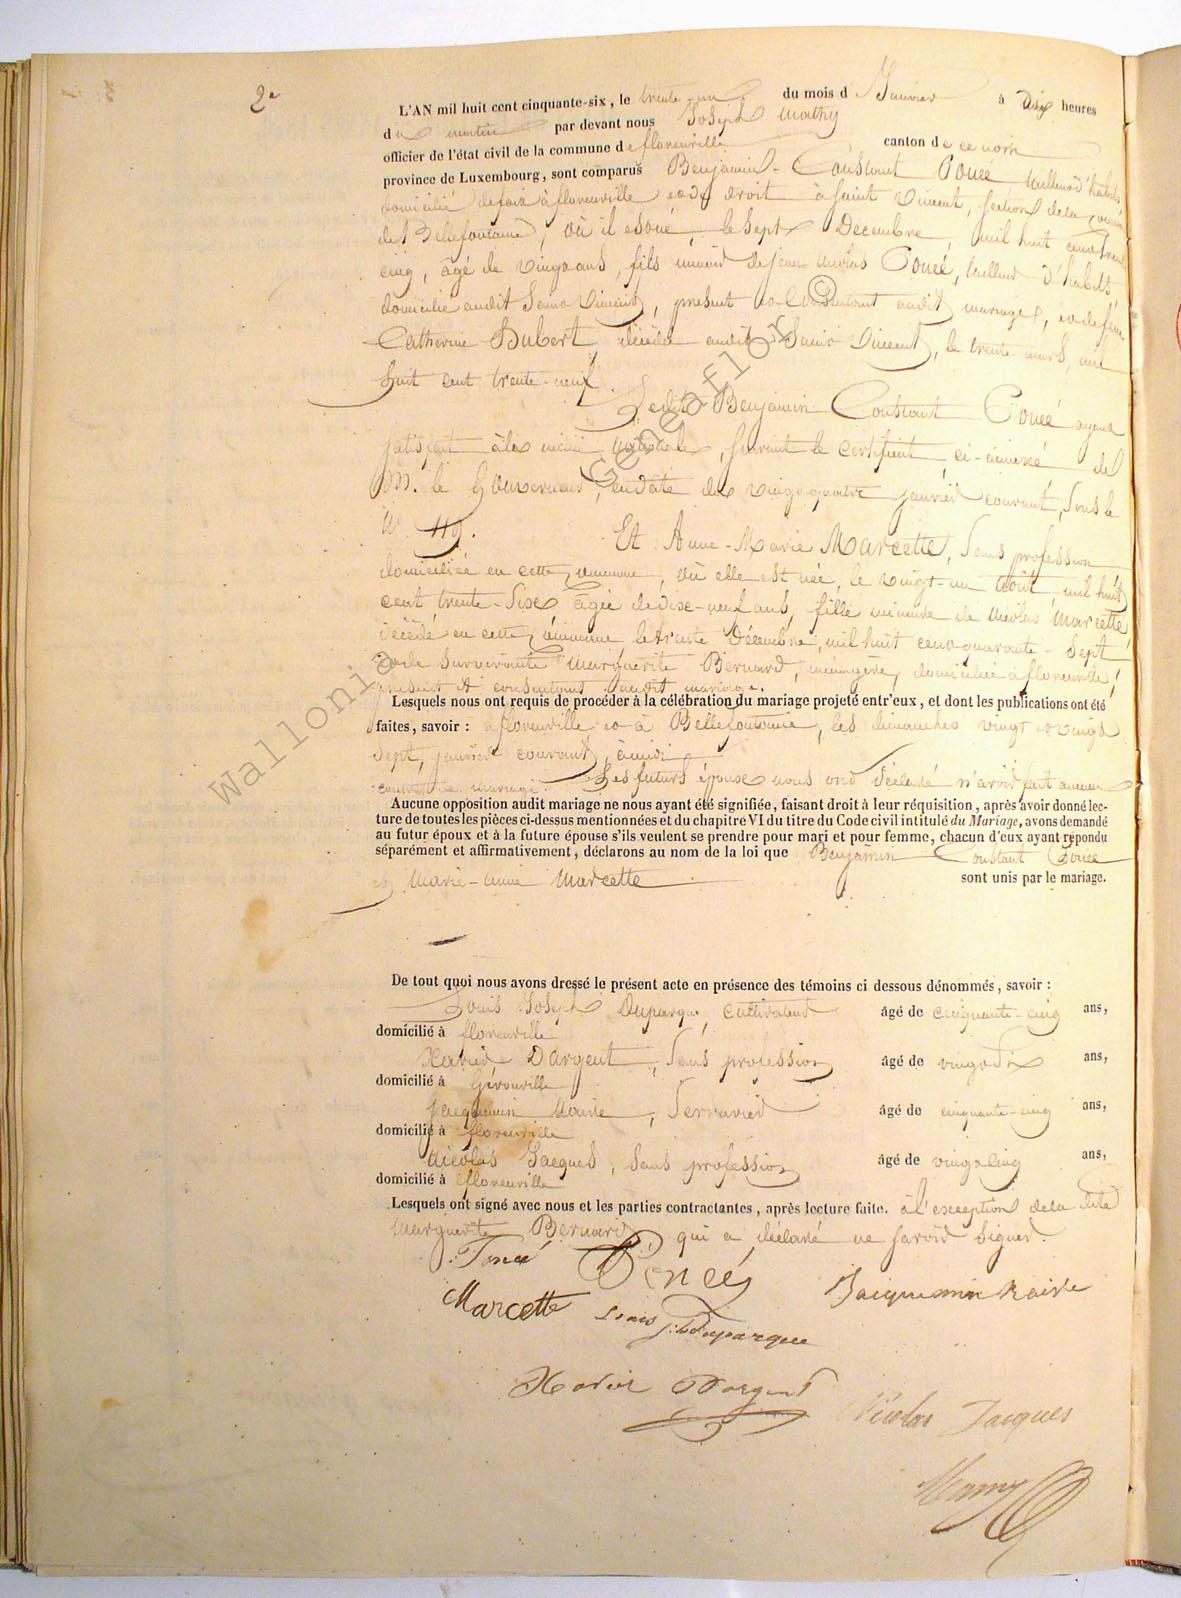 2e
L'AN mil huit cent cinquante-six, le trente-un du mois de Janvier à Dix heures
du matin par devant nous Joseph Mathy
officier de l'état civil de la commune de florenville canton de ce nom
province de Luxembourg, sont comparus Benjamin-Constant Poncé tailleur d'habits
domicilié de fait à florenville et de droit à Saint Vincent, section de la commune
de Bellefontaine, où il est né, le sept Décembre mil huit cent trente
cinq, âgé de vingt ans, fils mineur de Jean-Nicolas Poncé, tailleur d'habits,
domicilié audit Saint Vincent, présent et consentant audit mariage, et de feue
Catherine Hubert, décédée audit Saint Vincent, le trente mars, mil
huit cent trente-neuf.
Ledit Benjamin Constant Poncé ayant
satisfait à la milice nationale, suivant le certificat ci-annexé de
M. le Gouverneur, en date du vingt quatre janvier courant, sous le
N° 119. Et Anne-Marie Marcette, sans profession
domiciliée en cette commune, où elle est née, le vingt-un août, mil huit
cent trente-six âgée de dix-neuf ans, fille mineure de Nicolas Marcette,
décédé en cette commune le trente Décembre, mil huit cent quarante-sept
et de survivante Marguerite Bernard, ménagère, domiciliée à florenville,
présent et consentant audit mariage.
Lesquels nous ont requis de procéder à la célébration du mariage projeté entr'eux, et dont les publications ont été
faites, savoir : à florenville et à Bellefontaine, les dimanches vingt et vingt
sept, janvier courant, à midi
Les futurs époux nous ont déclaré n'avoir fait aucun
contrat de mariage.
Aucune opposition audit mariage ne nous ayant été signifiée, faisant droit à leur réquisition, après avoir donné lec-
ture de toutes les pièces ci-dessus mentionnées et du chapitre VI du titre du Code civil intitulé du Mariage, avons demandé
au futur époux et à la future épouse s'ils veulent se prendre pour mari et pour femme, chacun d'eux ayant répondu
séparément et affirmativement, déclarons au nom de la loi que Benjamin Constant Poncé
et Marie-Anne Marcette sont unis par le mariage.
De tout quoi nous avons dressé le présent acte en présence des témoins ci dessous dénommés, savoir :
Louis Joseph Duparque, cultivateur âgé de cinquante-cinq ans,
domicilié à florenville
Xavier Dargent, sans profession âgé de vingt-six ans,
domicilié à Gérouville
Jacquemin , Serrurier âgé de cinquante-cinq ans,
domicilié à florenville
Nicolas Jacques, sans profession âgé de vingt cinq ans,
domicilié à florenville
Lesquels ont signé avec nous et les parties contractantes, après lecture faite. à l'exception de la dite
Marguerite Bernard qui a déclaré ne savoir signer.
Poncé Poncé
Marcette Louis j: Duparque Jacquemin
Xavier Dargent Nicolas Jacques
Wallonia © Geneaflor